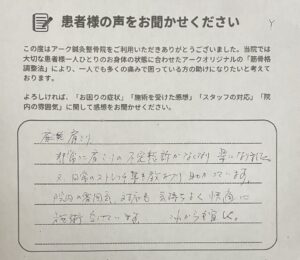 患者様の声をお聞かせください
この度はアーク鍼灸整骨院をご利用いただきありがとうございました。当院では
大切な患者様一人ひとりのお身体の状態に合わせたアークオリジナルの「筋骨格
調整法」により、一人でも多くの痛みで困っている方の助けになりたいと考えて
おります。
よろしければ、「お困りの症状」「施術を受けた感想」「スタッフの対応」「院
内の雰囲気」に関して感想をお聞かせください。
肩こり
非常に肩こりの
又、日常のストレッチ等も教わり助かっています。
院内の雰囲気、対応も気持ちよく快適に
施術受けています。これからも宜しく。